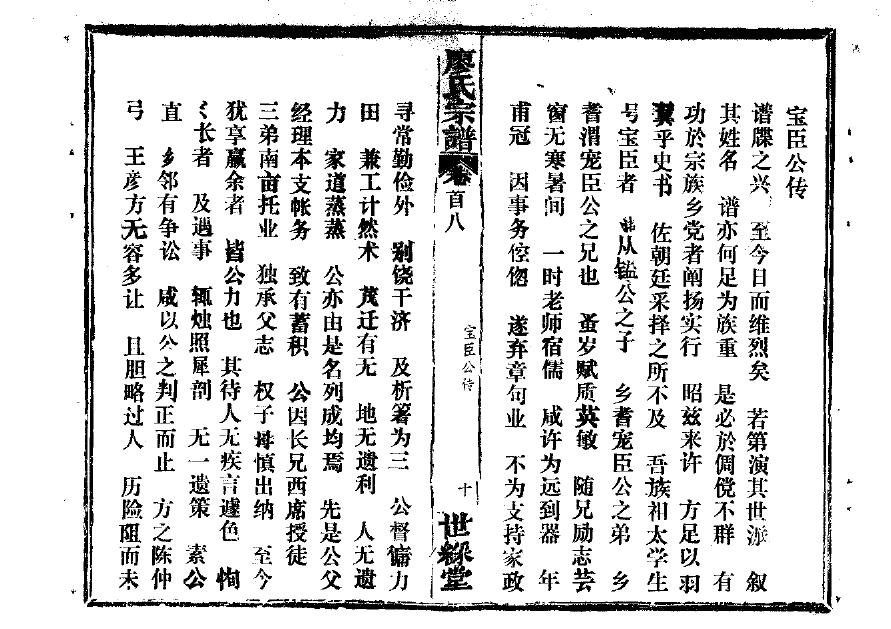 宝臣公传
谱牒之兴 至今日而维烈矣 若第演其世派 叙
其姓名 谱亦何足为族重 是必於倜傥不群 有
功於宗族乡党者阐扬实行 昭兹来许 方足以羽
翼乎史书 佐朝廷采择之所不及 吾族祖太学生
号宝臣者 从镒公之子 乡耆宠臣公之弟 乡
耆渭宠臣公之兄也 蚤岁赋质英敏 随兄励志芸
窗无寒暑间 一时老师宿儒 咸许为远到器 年
甫冠 因事务倥偬 遂弃章句业 不为支持家政
廖氏宗谱
卷首八
宝臣公传
十
世綵堂
寻常勤俭外 别饶干济 及析箸为三 公督傭力
田 兼工计然术 茂迁有无 地无遗利 人无遗
力 家道蒸蒸 公亦由是名列成均焉 先是公父
经理本支帐务 致有蓄积 公因长兄西席授徒
三弟南亩托业 独承父志 权子母慎出纳 至今
犹享赢余者 皆公力也 其待人无疾言遽色 恂
〻长者 及遇事 辄烛照犀剖 无一遗策 素公
直 乡邻有争讼 咸以公之判正而止 方之陈仲
弓 王彦方无容多让 且胆略过人 历险阻而未